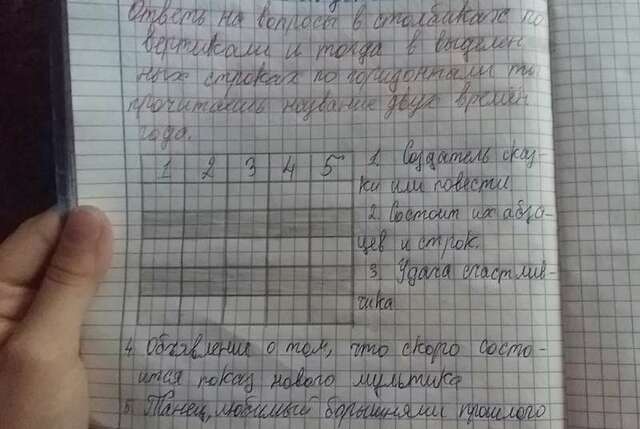 Ответь на вопросы в столбиках по
вертикали и тогда в выделен
ных строках по горизонтали ты
прочитаешь название двух времён
года.
1 2 3 4 5
1. Создатель сказ-
ки или повести
2. Состоит их абза-
цев и строк.
3. Удача счастлив-
чика
4. Объявление о том, что скоро состо-
ится показ нового мультика
5. Танец, любимый барышнями прошлого